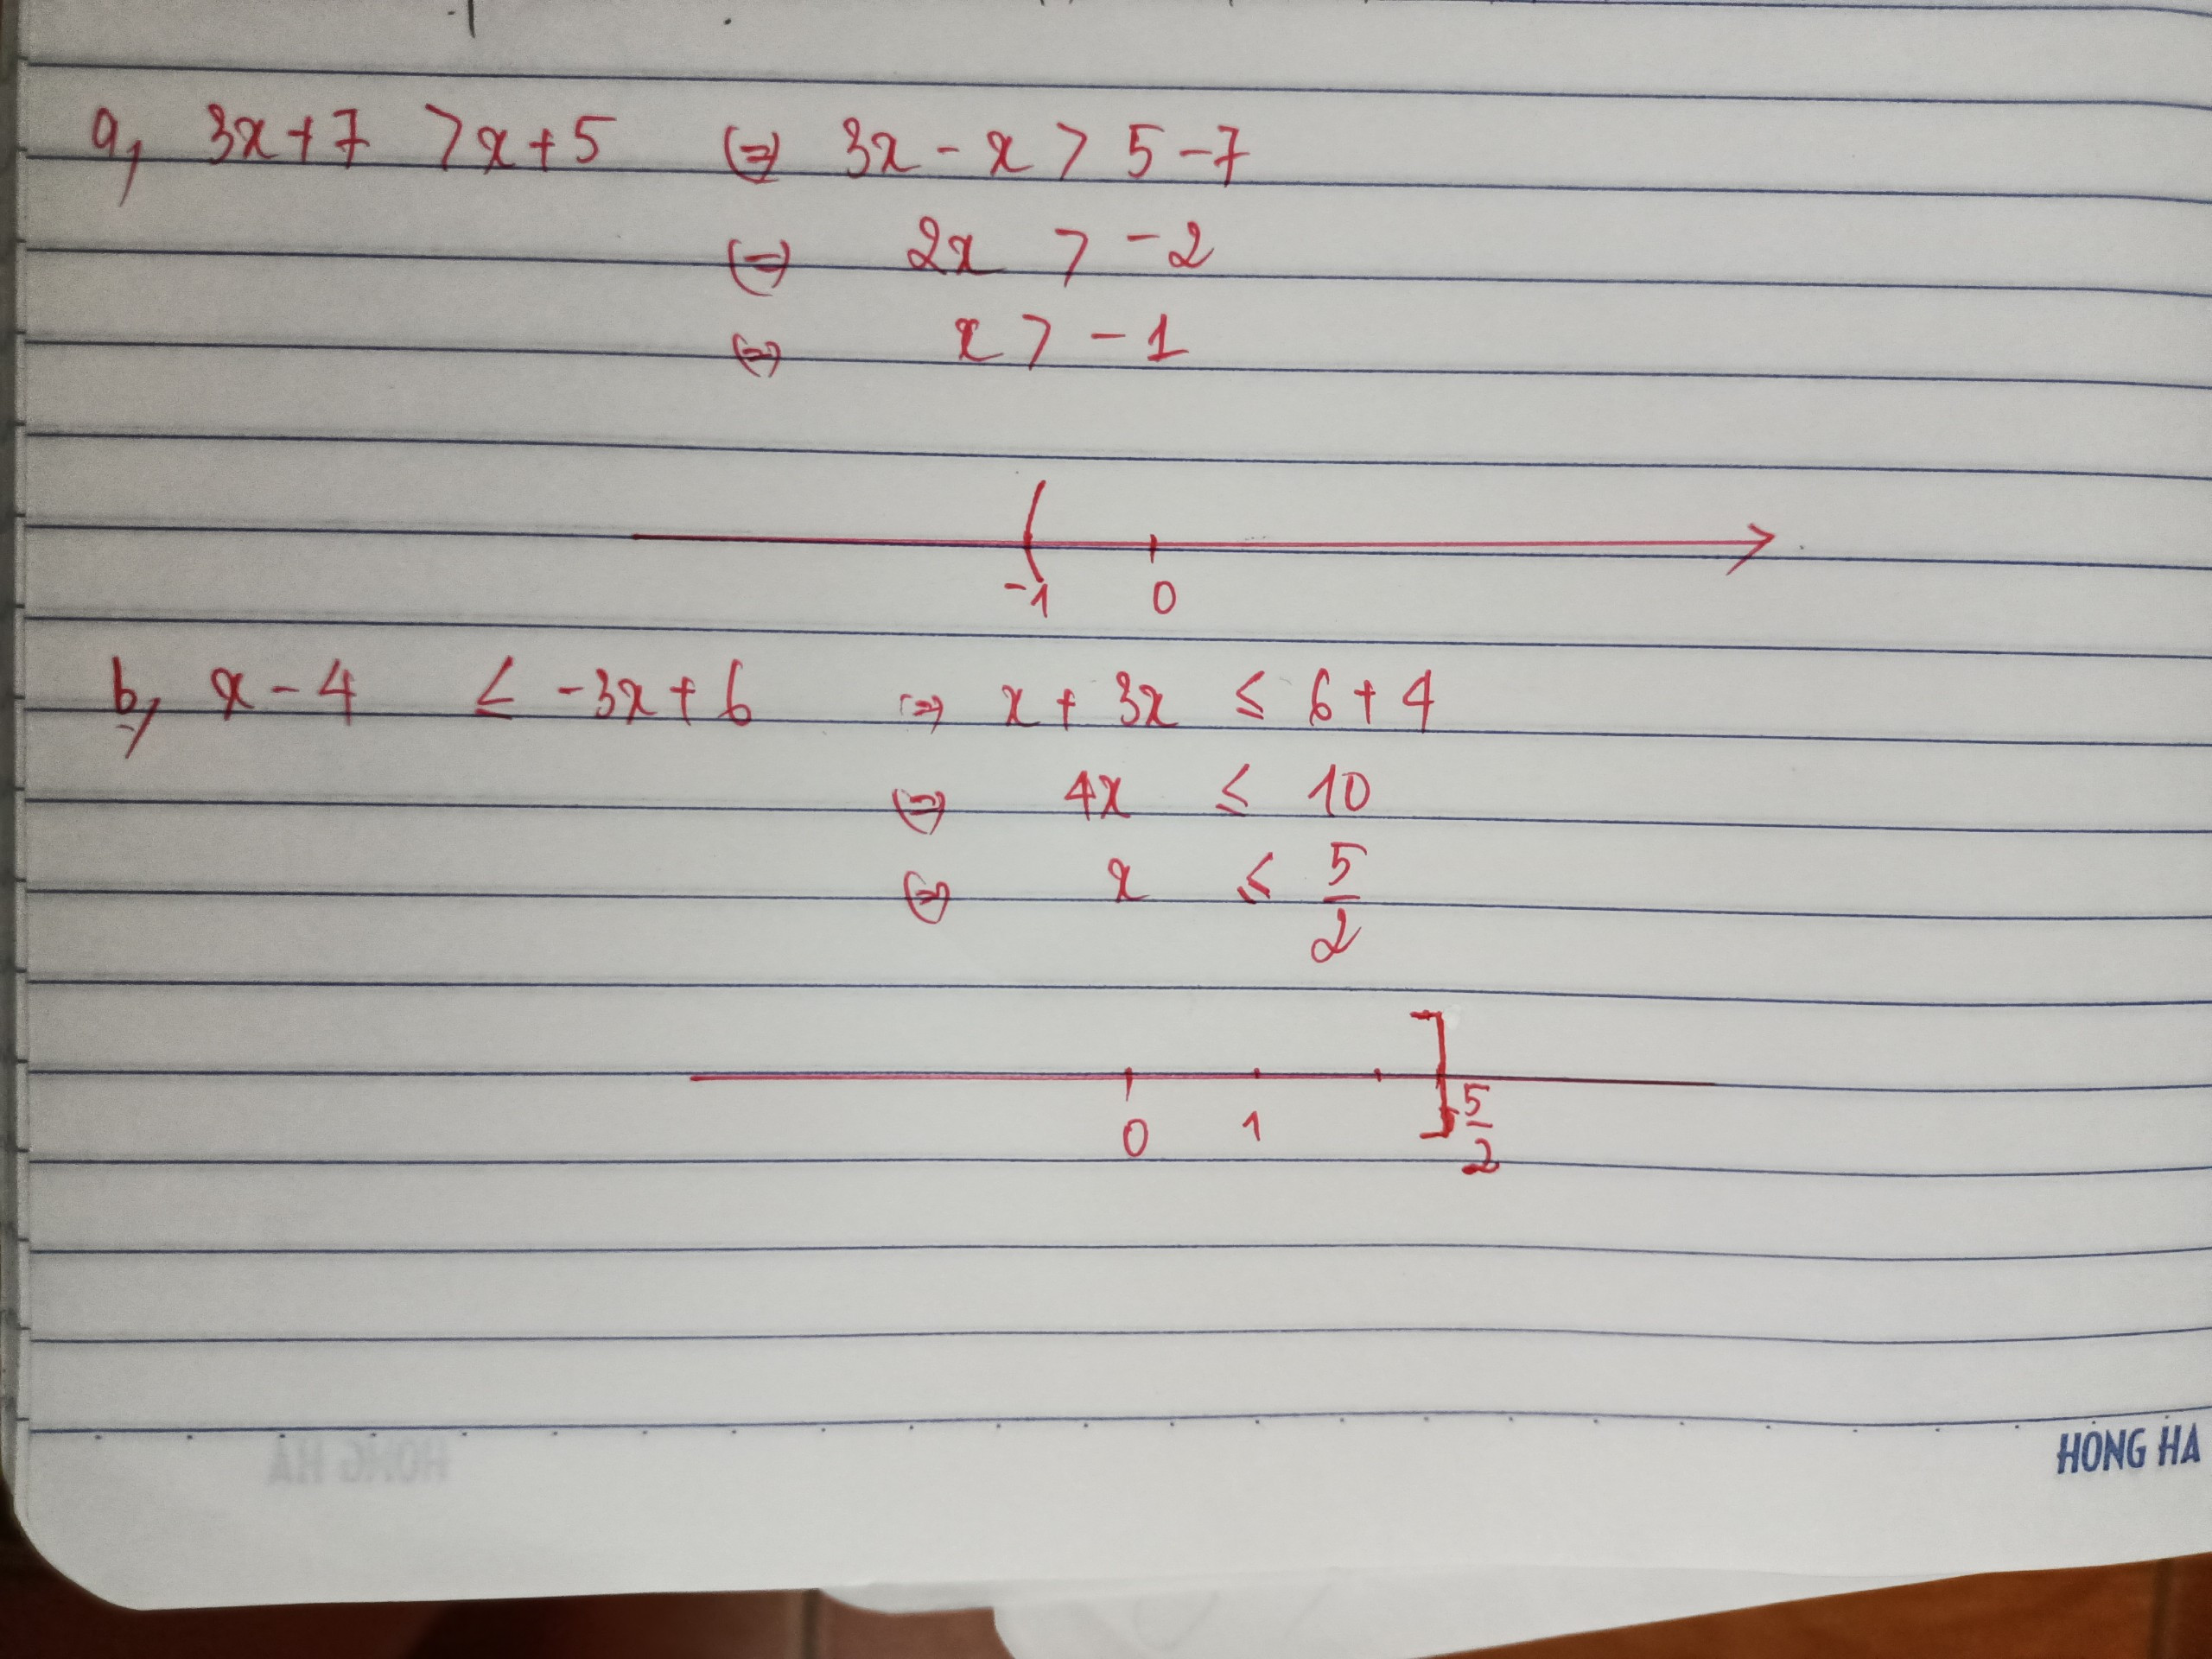 a, 3x+7 > x+5 (=) 3x - x > 5-7
(=) 2x > -2
(=) x > -1
-1 0
b, x-4 ≤ -3x+6 (=) x + 3x ≤ 6+4
(=) 4x ≤ 10
(=) x ≤ 5/2
0 1 5/2
HONG HA